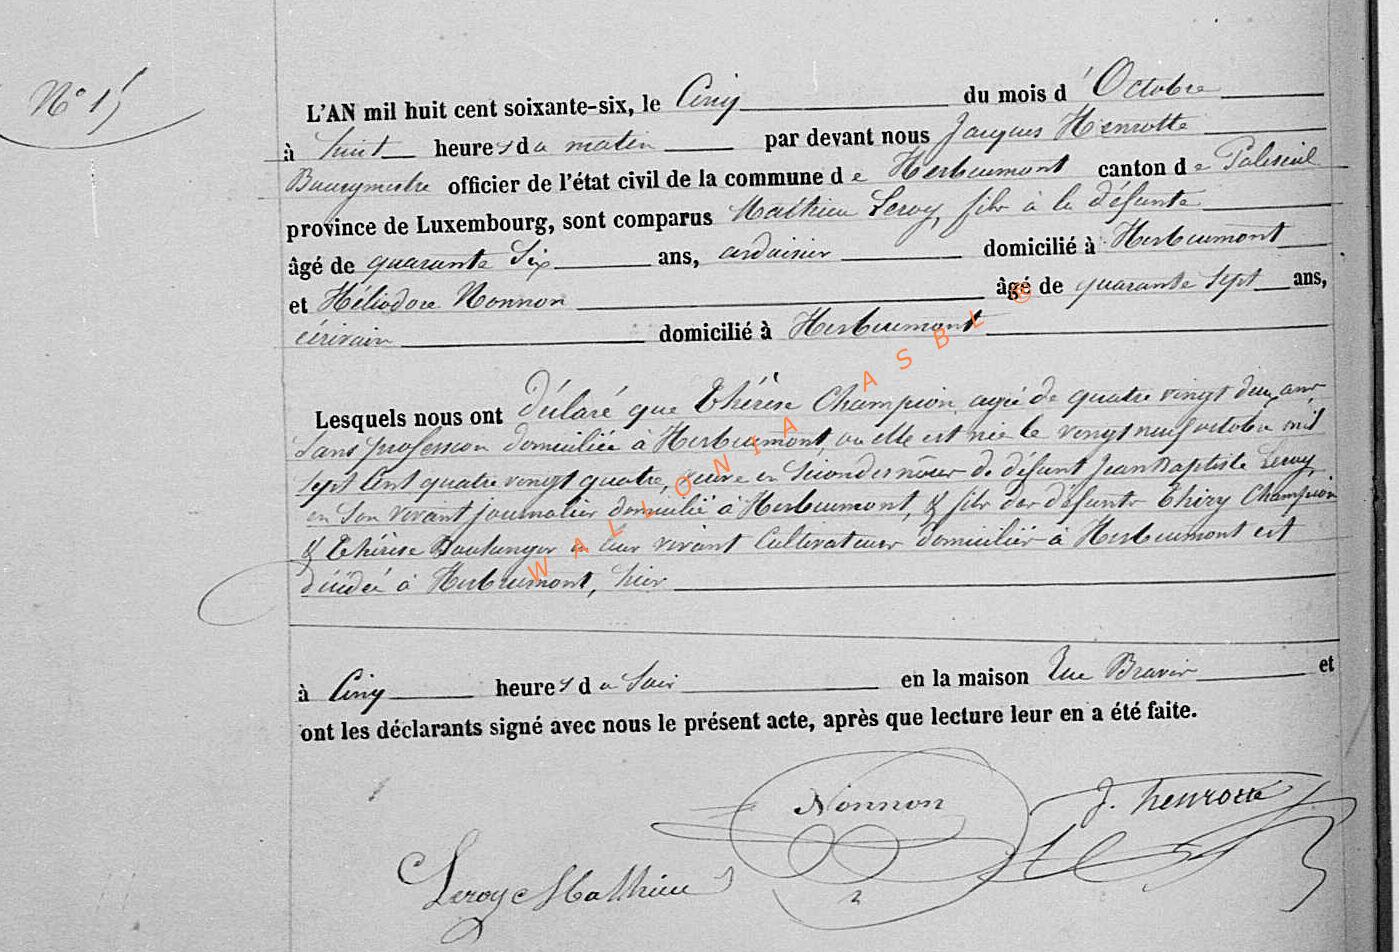 N° 15
L'AN mil huit cent soixante-six, le Cinq du mois d' Octobre
à huit heures du matin par devant nous Jacques Henrotte
Bourgmestre officier de l'état civil de la commune de Herbeumont canton de Paliseul
province de Luxembourg, sont comparus Mathieu Leroy, fils à la défunte
âgé de quarante six ans, ardoisier domicilié à Herbeumont
et Héliodore Nonnon âgé de quarante sept ans,
écrivain domicilié à Herbeumont
Lesquels nous ont déclaré que Thérèse Champion agée de quatre vingt deux ans,
sans profession domiciliée à Herbeumont, ou elle est née le vingt neuf octobre mil
sept cent quatre vingt quatre, veuve en secondes nôces de défunt Jean Baptiste Leroy,
en son vivant journalier domicilié à Herbeumont, & fille des défunts Thiry Champion
& Thérèse Boulanger en leur vivant Cultivateurs domiciliés à Herbeumont est
décédée à Herbeumont, hier
à Cinq heures du soir en la maison rue Bravin et
ont les déclarants signé avec nous le présent acte, après que lecture leur en a été faite.
Nonnon
J. henrotte
Leroy Mathieu
WALLONIA ASBL ©